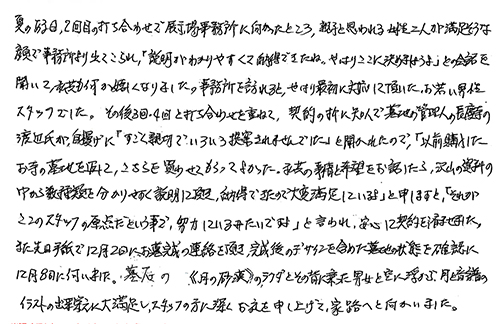 夏の63日、2回目の打ち合わせで展示場事務所に向かったところ、親子と思われる女性二人が満足そうな
顔で事務所より出てこられ、「説明がわかりやすくて納得できたね。やはりここに決めましょうよ」との会話を
聞いて、私共も何か嬉しくなりました。事務所を訪れると、やはり最初に対応して頂いた、お若い男性
スタッフでした。その後3回・4回と打ち合わせを重ねて、契約の折に知人で墓地の管理人の
渡辺氏が自慢げに「すごく親切でいろいろ提案されませんでした」と聞かれたので、「以前購入した
お寺の墓地を止て、こちらを買わせてもらってよかった。私共の事情と希望をお話したら、沢山の資料の
中から数種類を分かりやすく説明に廻り、納得できたので大変満足しているよ」と申しますと、「それが
ここのスタッフの原点だという事で、努力している様ですよ」と言われ、安心して契約を済ませました。
また先日手紙で12月2日にお墓完成の連絡を頂き、完成後のデザインを含めた墓地の状態を確認に
12月8日に伺いました。墓石の《月の砂漠》のラクダとその背に乗った男女と空に浮ぶ月と音譜の
イラストの出来栄えに大満足し、スタッフの方に深くお礼を申し上げて、家路へと向かいました。